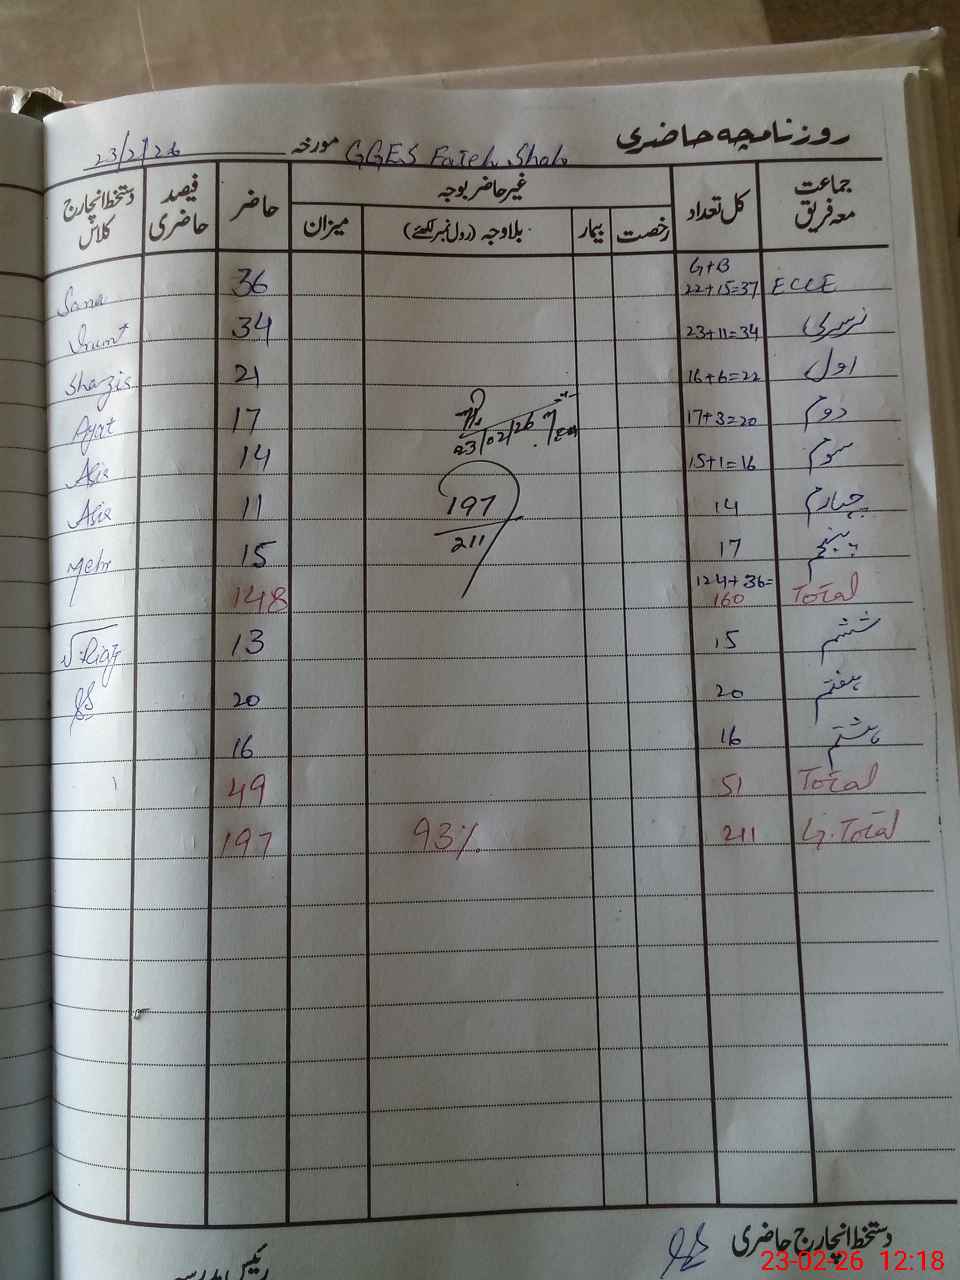 روزنامچہ حاضری GGES Fateh Shah مورخہ 23/2/26
جماعت معہ فریق کل تعداد غیر حاضر بوجہ حاضر فیصد حاضری دستخط انچارج کلاس
رخصت بیمار بلاوجہ (رول نمبر لکھئے) میزان
G+B
ECCE 22+15=37 36 Sana
نرسری 23+11=34 34
اول 16+6=22 21 Shazia
دوم 17+3=20 17 Ayat
23/02/26
سوم 15+1=16 14 Asia
چہارم 14 11 Asia
197
211
پنجم 17 15 Mehr
124+36=
Total 160 148
ششم 15 13
ہفتم 20 20
ہشتم 16 16
Total 51 49
G.Total 211 93% 197
دستخط انچارج حاضری
23-02-26 12:18